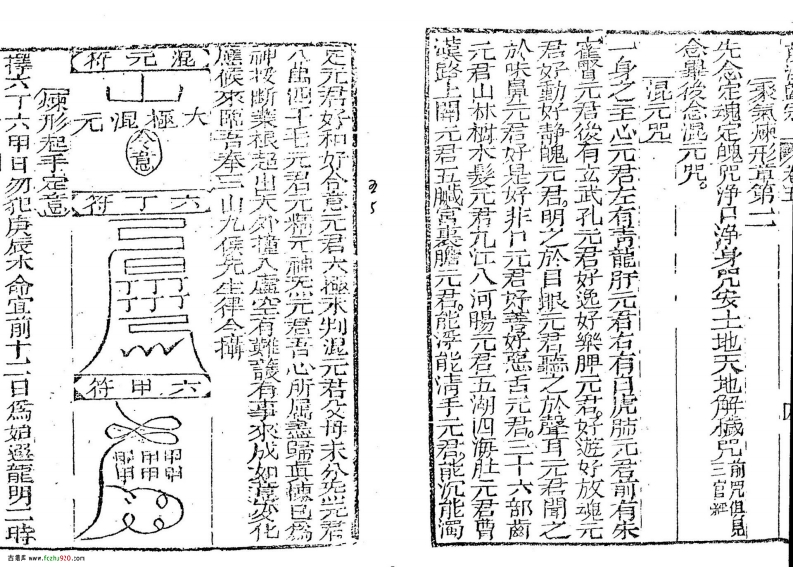 聚氣煉形章第二
先念定魂定魄咒淨口淨身咒安土地天地解穢咒前咒俱見三官經
念畢後念混元咒。
混元咒
一身之主心元君左有青龍肝元君右有白虎肺元君前有朱
元君後有玄武孔元君好逸好樂脾元君。好遊好放魂元
君好動好静魄元君。明之於目眼元君聽之於聲耳元君聞之
於味鼻元君好是好非口元君好善好惡舌元君。三十六部齒
元君山林樹木髮元君九江八河腸元君五湖四海肚元君曹
漢路上關元君五臟宮裏膽元君。能浮能清手元君。能沉能濁
足元君好和好合意元君太極未判混元君父母未分炁元君
八萬四千毛元君元精元神炁元君吾心所屬盡歸真穗已爲
神接斷業根超出天外撞入虛空有難護有事來成如意變化
應候來臨吾奉三山九候先生律令攝
混元符
大極混元
六丁符
六甲符
煉形起手定意
擇六丁六甲日勿犯庚辰木命宜前十二日爲始避龍明二時
古易库 www.fczhu920.com